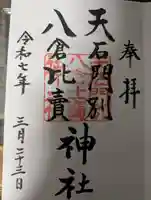 奉拝
天石門別
八倉比賣
神社
令和七年
三月二十三日